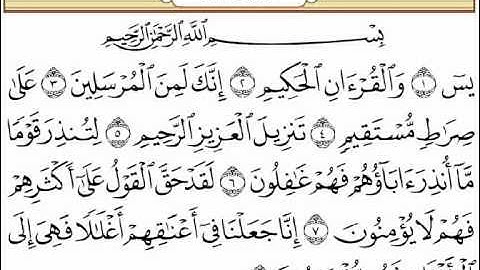 بِسْمِ ٱللَّهِ ٱلرَّحْمَٰنِ ٱلرَّحِيمِ
يسٓ ١ وَٱلْقُرْءَانِ ٱلْحَكِيمِ ٢ إِنَّكَ لَمِنَ ٱلْمُرْسَلِينَ ٣ عَلَىٰ
صِرَٰطٍ مُّسْتَقِيمٍ ٤ تَنزِيلَ ٱلْعَزِيزِ ٱلرَّحِيمِ ٥ لِتُنذِرَ قَوْمًا
مَّآ أُنذِرَ ءَابَآؤُهُمْ فَهُمْ غَٰفِلُونَ ٦ لَقَدْ حَقَّ ٱلْقَوْلُ عَلَىٰٓ أَكْثَرِهِمْ
فَهُمْ لَا يُؤْمِنُونَ ٧ إِنَّا جَعَلْنَا فِىٓ أَعْنَٰقِهِمْ أَغْلَٰلًا فَهِىَ إِلَى